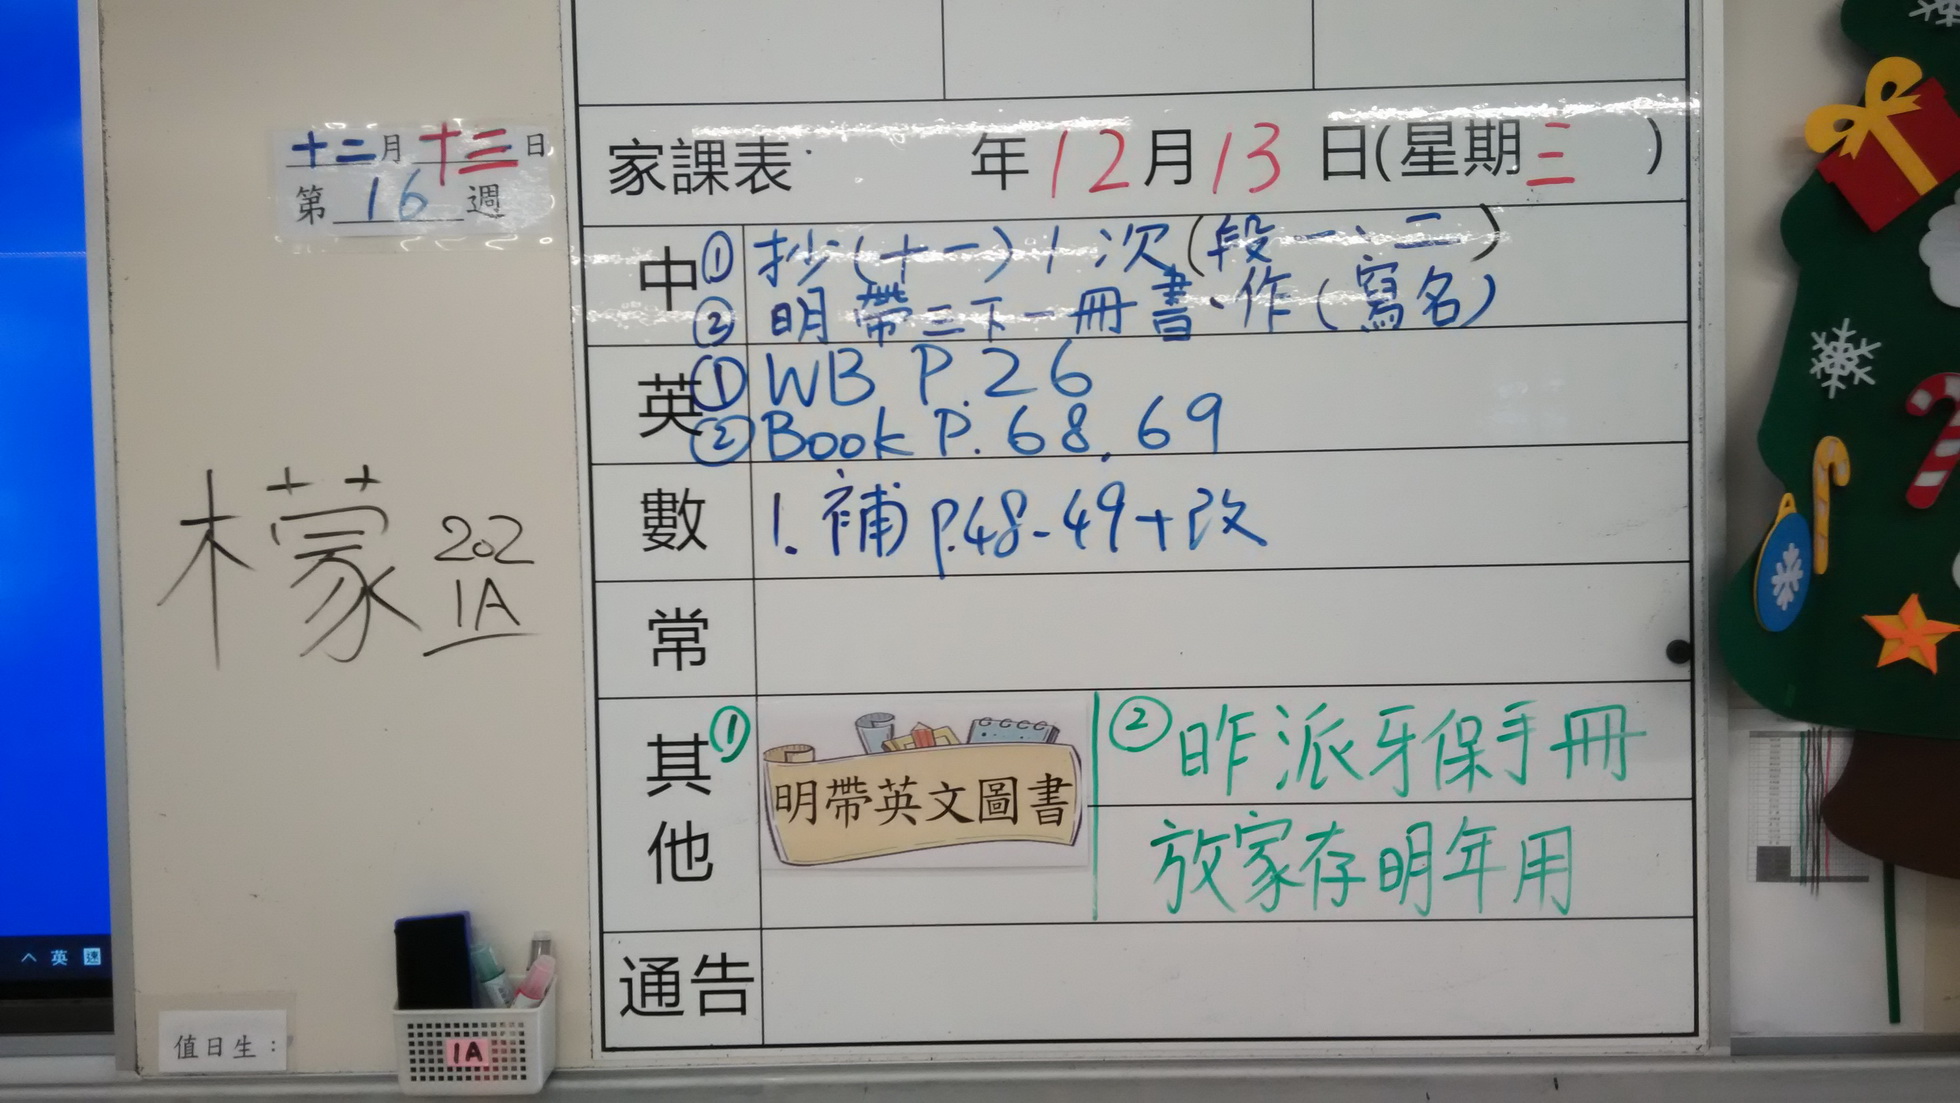 十二月十三日
第16週
檬 202
1A
家課表 年12月13日(星期三)
中 ① 抄(十一)1次(段一、二)
② 明帶三下一冊書、作(寫名)
英 ① WB P.26
② Book P.68,69
數 1. 補 p.48-49+改
常
其他 ① 明帶英文圖書
② 昨派牙保手冊
放家存明年用
通告
值日生：
1A
英 速